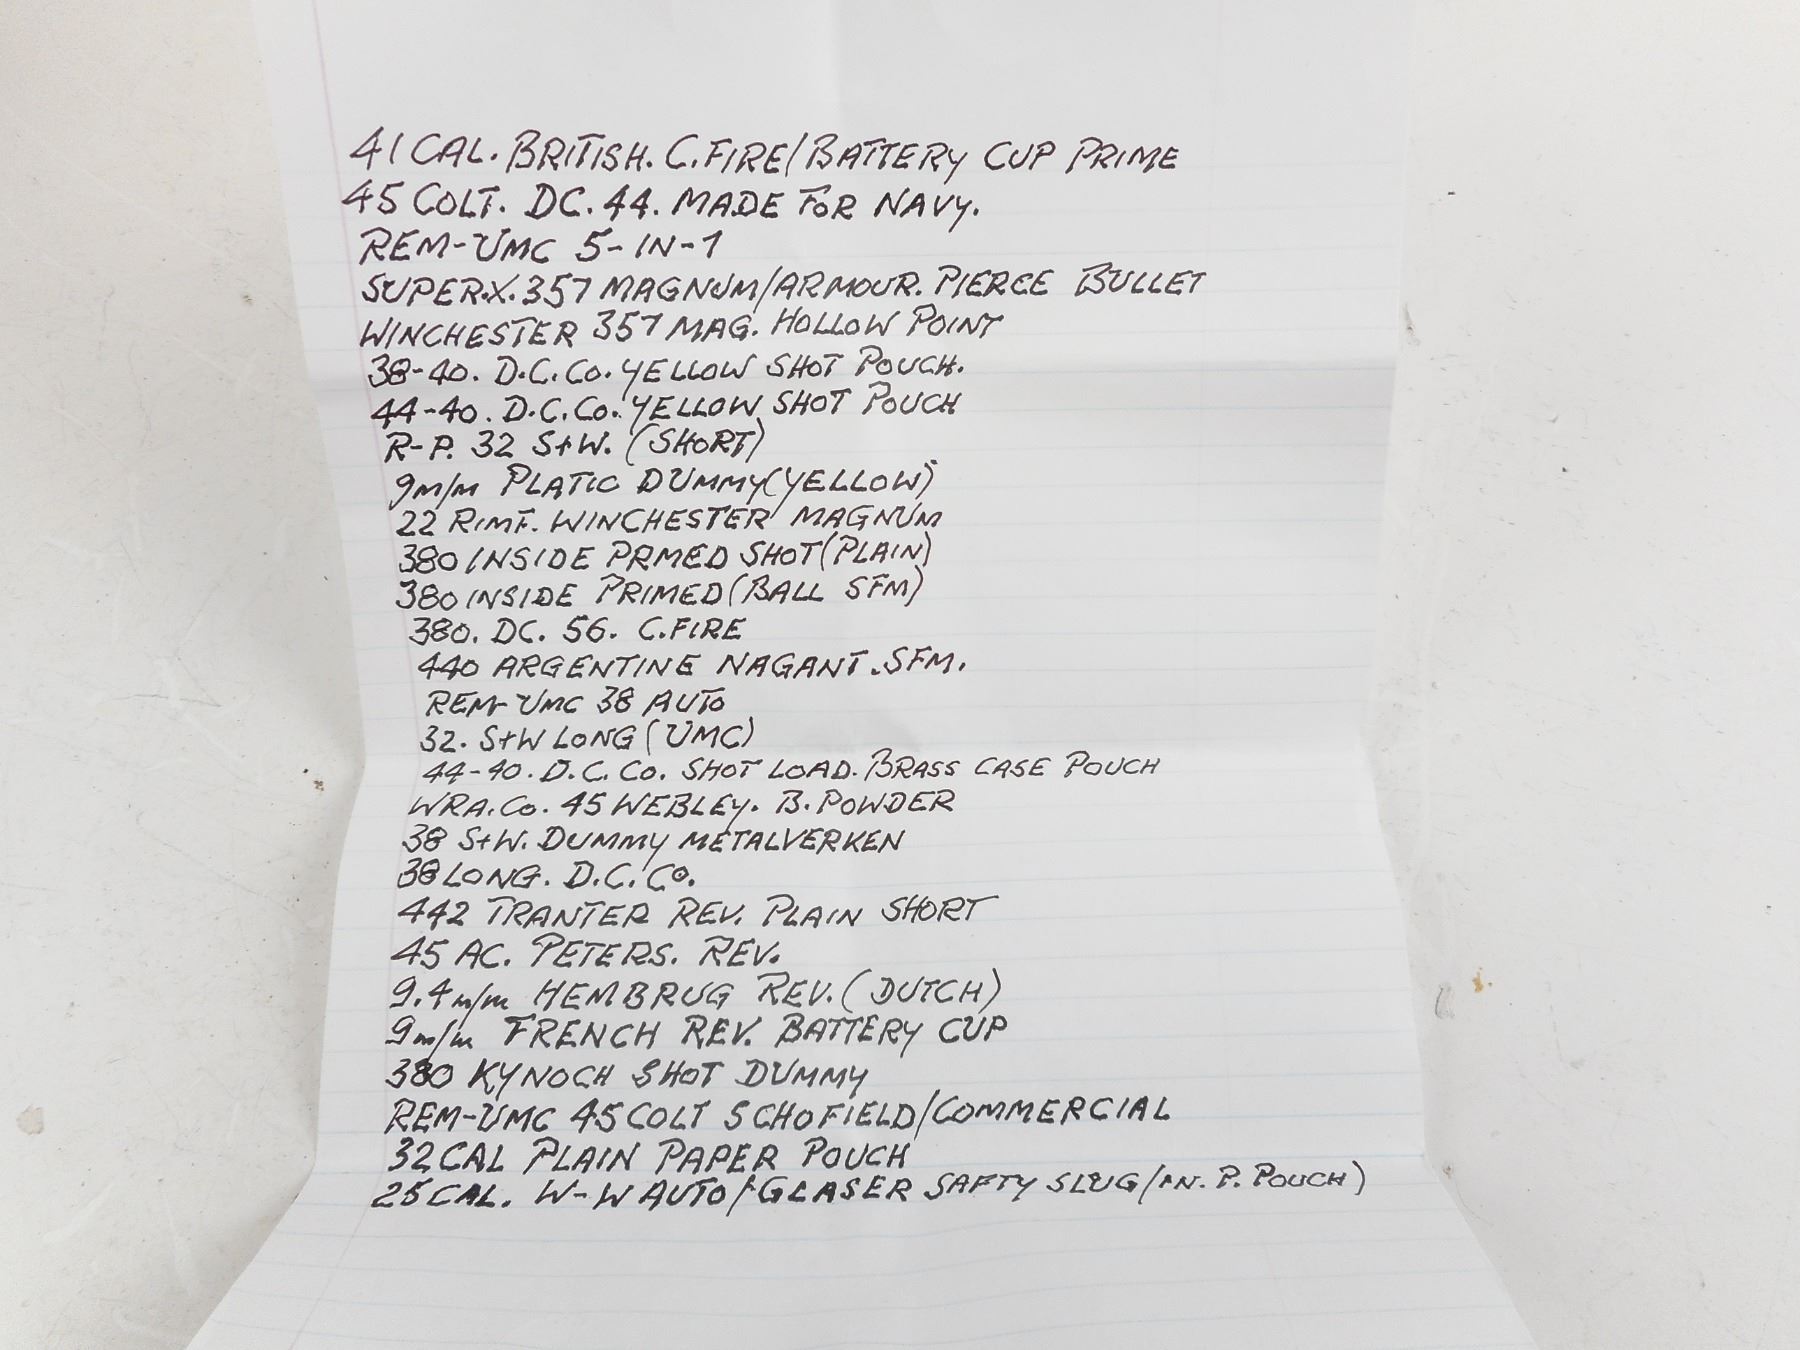 41 CAL. BRITISH. C.FIRE/BATTERY CUP PRIME
45 COLT. DC. 44. MADE FOR NAVY.
REM-UMC 5-IN-1
SUPER.X. 357 MAGNUM/ARMOUR. PIERCE BULLET
WINCHESTER 357 MAG. HOLLOW POINT
38-40. D.C.CO. YELLOW SHOT POUCH.
44-40. D.C.CO. YELLOW SHOT POUCH
R-P. 32 S+W. (SHORT)
9m/m PLATIC DUMMY(YELLOW)
22 RIMF. WINCHESTER MAGNUM
380 INSIDE PRMED SHOT(PLAIN)
380 INSIDE PRIMED(BALL SFM)
380. DC. 56. C.FIRE
440 ARGENTINE NAGANT.SFM.
REM-UMC 38 AUTO
32. S+W LONG (UMC)
44-40. D.C.CO. SHOT LOAD. BRASS CASE POUCH
WRA.CO. 45 WEBLEY. B. POWDER
38 S+W. DUMMY METALVERKEN
38 LONG. D.C.CO.
442 TRANTER REV. PLAIN SHORT
45 AC. PETERS. REV.
9.4 m/m HEMBRUG REV. (DUTCH)
9m/m FRENCH REV. BATTERY CUP
380 KYNOCH SHOT DUMMY
REM-UMC 45 COLT SCHOFIELD/COMMERCIAL
32 CAL PLAIN PAPER POUCH
25 CAL. W-W AUTO/GLASER SAFTY SLUG/IN. P. POUCH)